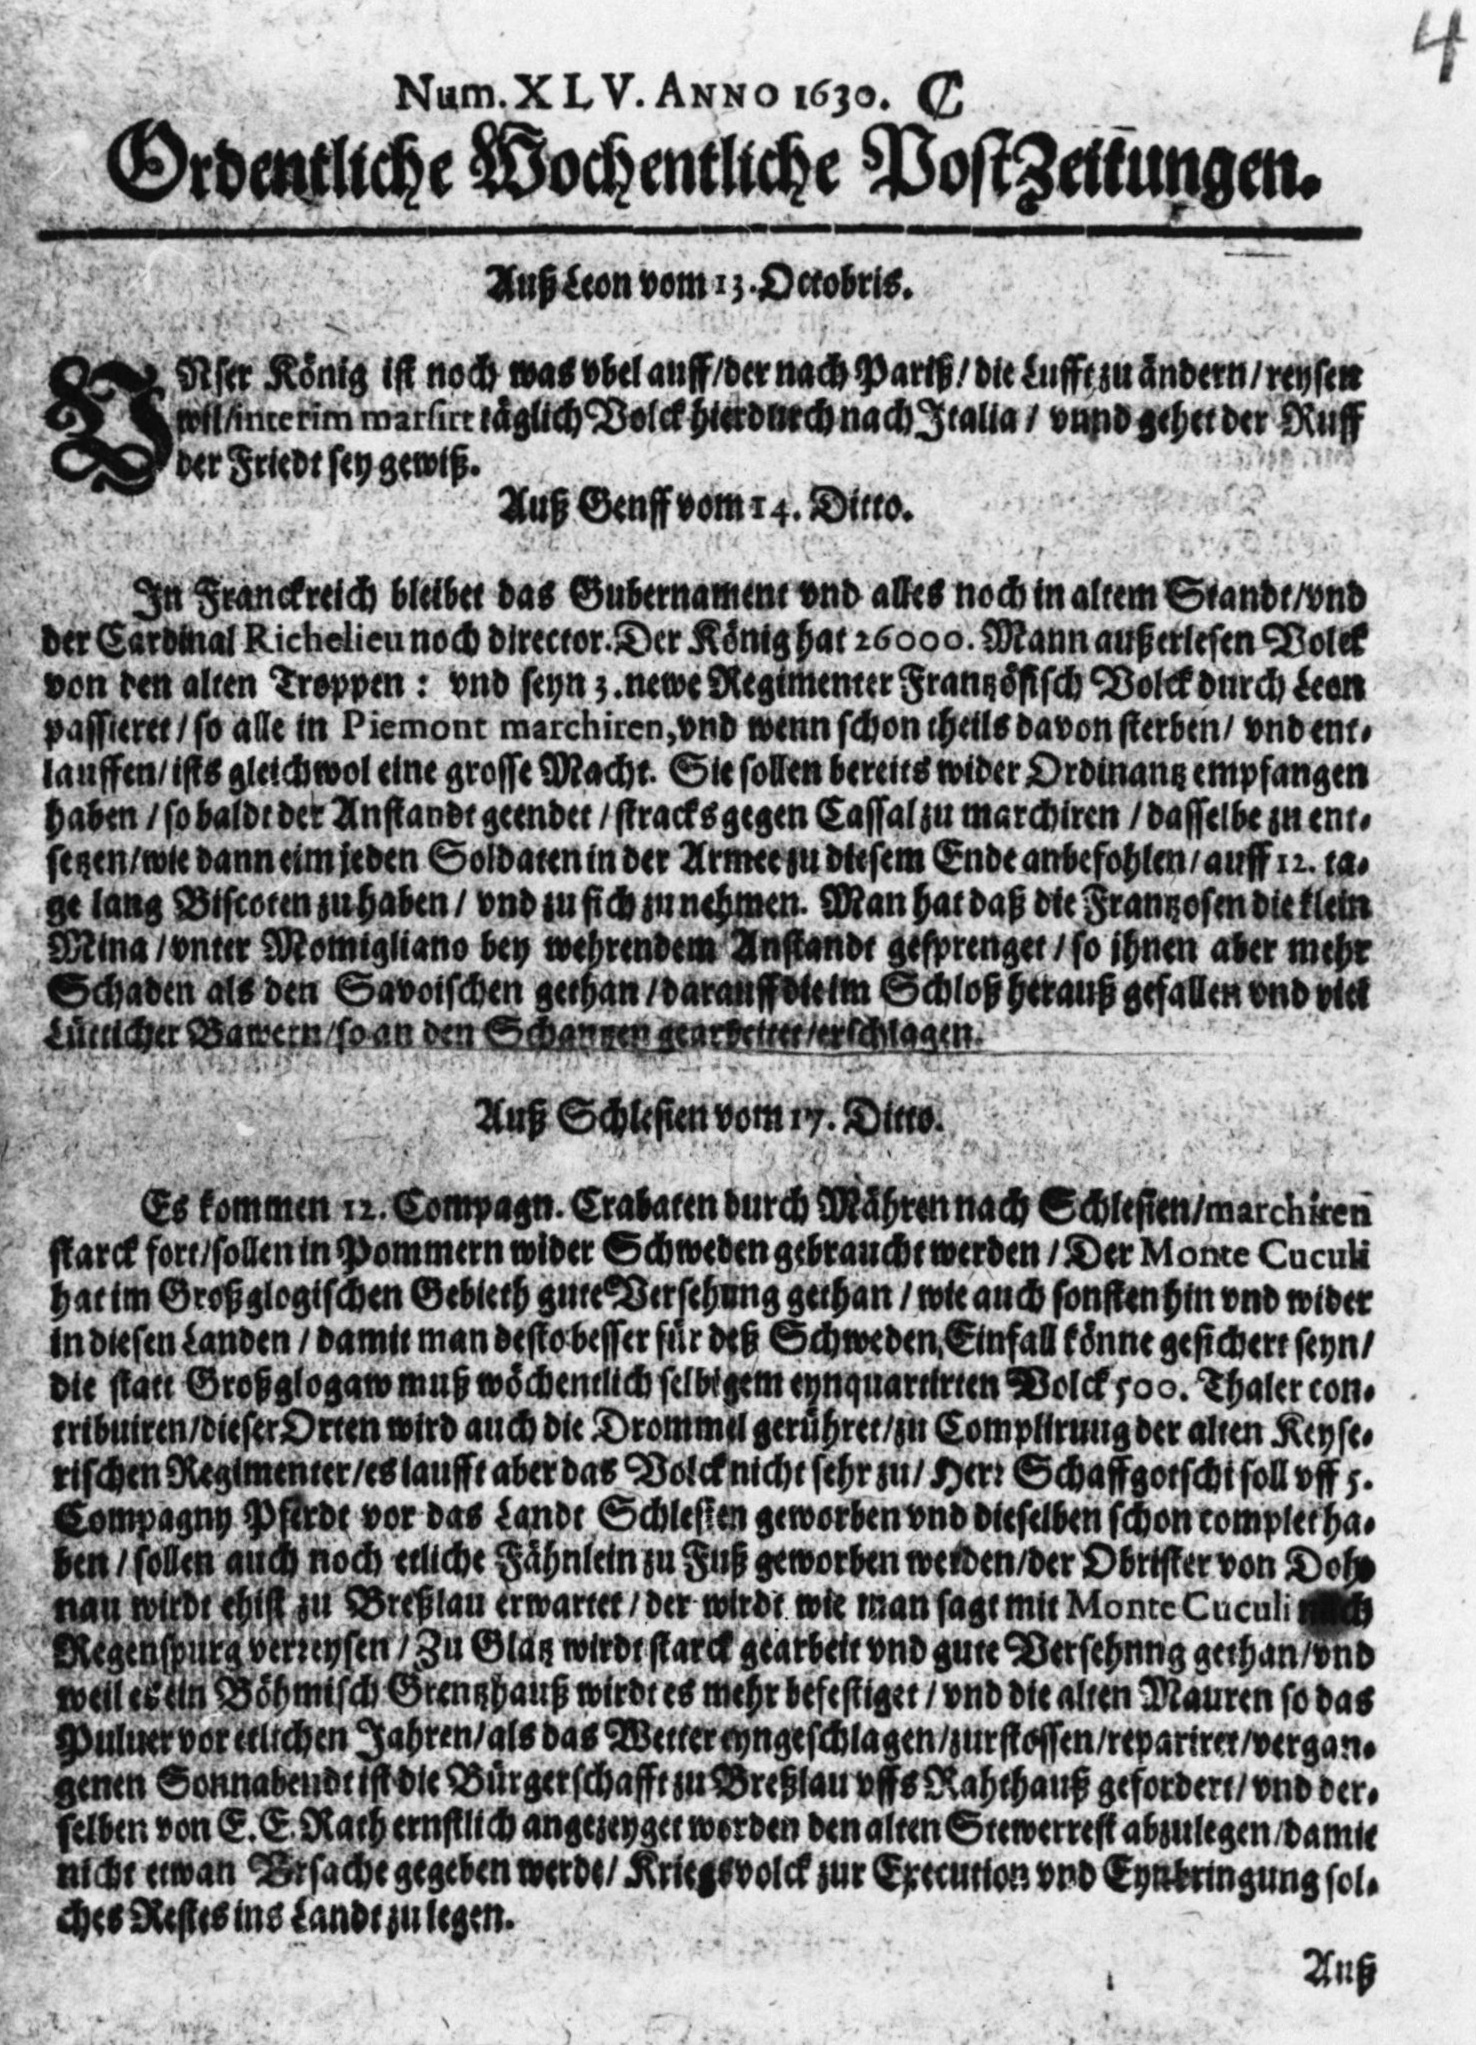 4
Num. XLV. ANNO 1630. C
Ordentliche Wochentliche PostZeitungen.
Auß Leon vom 13. Octobris.
VNser König ist noch was vbel auff/der nach Pariß/ die Lufft zu ändern/reysen
wil/interim marsirt täglich Volck hierdurch nach Italia / vnnd gehet der Ruff
der Friedt sey gewiß.
Auß Genff vom 14. Ditto.
In Franckreich bleibet das Gubernament vnd alles noch in altem Standt/vnd
der Cardinal Richelieu noch director. Der König hat 26000. Mann außerlesen Volck
von den alten Troppen : vnd seyn 3. newe Regimenter Frantzösisch Volck durch Leon
passieret / so alle in Piemont marchiren, vnd wenn schon theils davon sterben/ vnd ent-
lauffen/ists gleichwol eine grosse Macht. Sie sollen bereits wider Ordinantz empfangen
haben / so baldt der Anstandt geendet / stracks gegen Cassal zu marchiren / dasselbe zu ent-
setzen/wie dann eim jeden Soldaten in der Armee zu diesem Ende anbefohlen/ auff 12. ta-
ge lang Biscoten zu haben / vnd zu sich zu nehmen. Man hat daß die Frantzosen die klein
Mina / vnter Momigliano bey wehrendem Anstandt gesprenget / so ihnen aber mehr
Schaden als den Savoischen gethan / darauff die im Schloß herauß gefallen vnd viel
Lütticher Bawern/so an den Schantzen gearbeitet/erschlagen.
Auß Schlesien vom 17. Ditto.
Es kommen 12. Compagn. Crabaten durch Mähren nach Schlesien/marchiren
starck fort/sollen in Pommern wider Schweden gebraucht werden / Der Monte Cuculi
hat im Großglogischen Gebieth gute Versehung gethan / wie auch sonsten hin vnd wider
in diesen Landen / damit man desto besser für deß Schweden Einfall könne gesichert seyn/
die statt Großglogaw muß wöchentlich selbigem eynquartirten Volck 500. Thaler con-
tribuiren/dieser Orten wird auch die Drommel gerühret/zu Complirung der alten Keyse-
rischen Regimenter/es laufft aber das Volck nicht sehr zu/ Herr Schaffgotschi soll vff 5.
Compagny Pferdt vor das Landt Schlesien geworben vnd dieselben schon complet ha-
ben / sollen auch noch etliche Fähnlein zu Fuß geworben werden/der Obrister von Doh-
nau wirdt ehist zu Breßlau erwartet / der wirdt wie man sagt mit Monte Cuculi nach
Regenspurg verreysen / Zu Glatz wirdt starck gearbeit vnd gute Versehung gethan/vnd
weil es ein Böhmisch Grentzhauß wirdt es mehr befestiget / vnd die alten Mauren so das
Puluer vor etlichen Jahren/als das Wetter eyngeschlagen/zurstossen/repariret/vergan-
genen Sonnabendt ist die Bürgerschafft zu Breßlau vffs Rahthauß gefordert/ vnd der-
selben von E. E. Rath ernstlich angezeyget worden den alten Stewerrest abzulegen/damit
nicht etwan Vrsache gegeben werde/ Kriegsvolck zur Execution vnd Eynbringung sol-
ches Restes ins Landt zu legen.
Auß